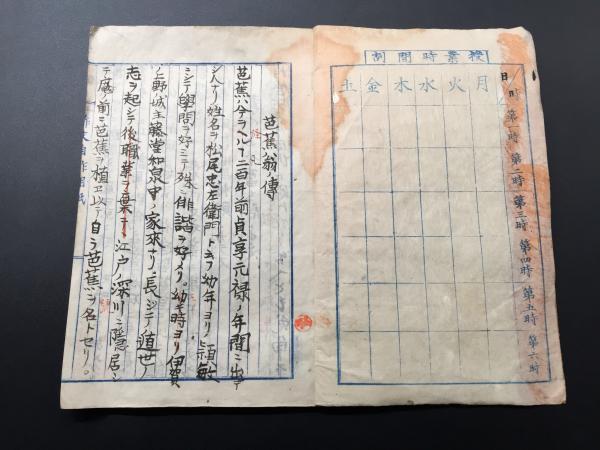 割間時業授
日
時
第一時
第二時
第三時
第四時
第五時
第六時
月
火
水
木
金
土
芭蕉翁ノ傳
芭蕉ハ今ヲヘル二百年前貞享元禄ノ年間ニ出デ
シ人ナリ姓名ヲ松尾忠左衛門ト云フ幼年ヨリ頴敏
ニシテ學問ヲ好ミテ殊ニ俳諧ヲ好メリ。幼時ヨリ伊賀
ノ上野ノ城主藤堂和泉守ノ家來ナリ。長ジテ遁世ノ
志ヲ起シテ後職業ヲ棄テ江戸ノ深川ニ隠居シ
テ庭ノ前ニ芭蕉ヲ植ヱ以テ自ラ芭蕉ヲ名トセリ。